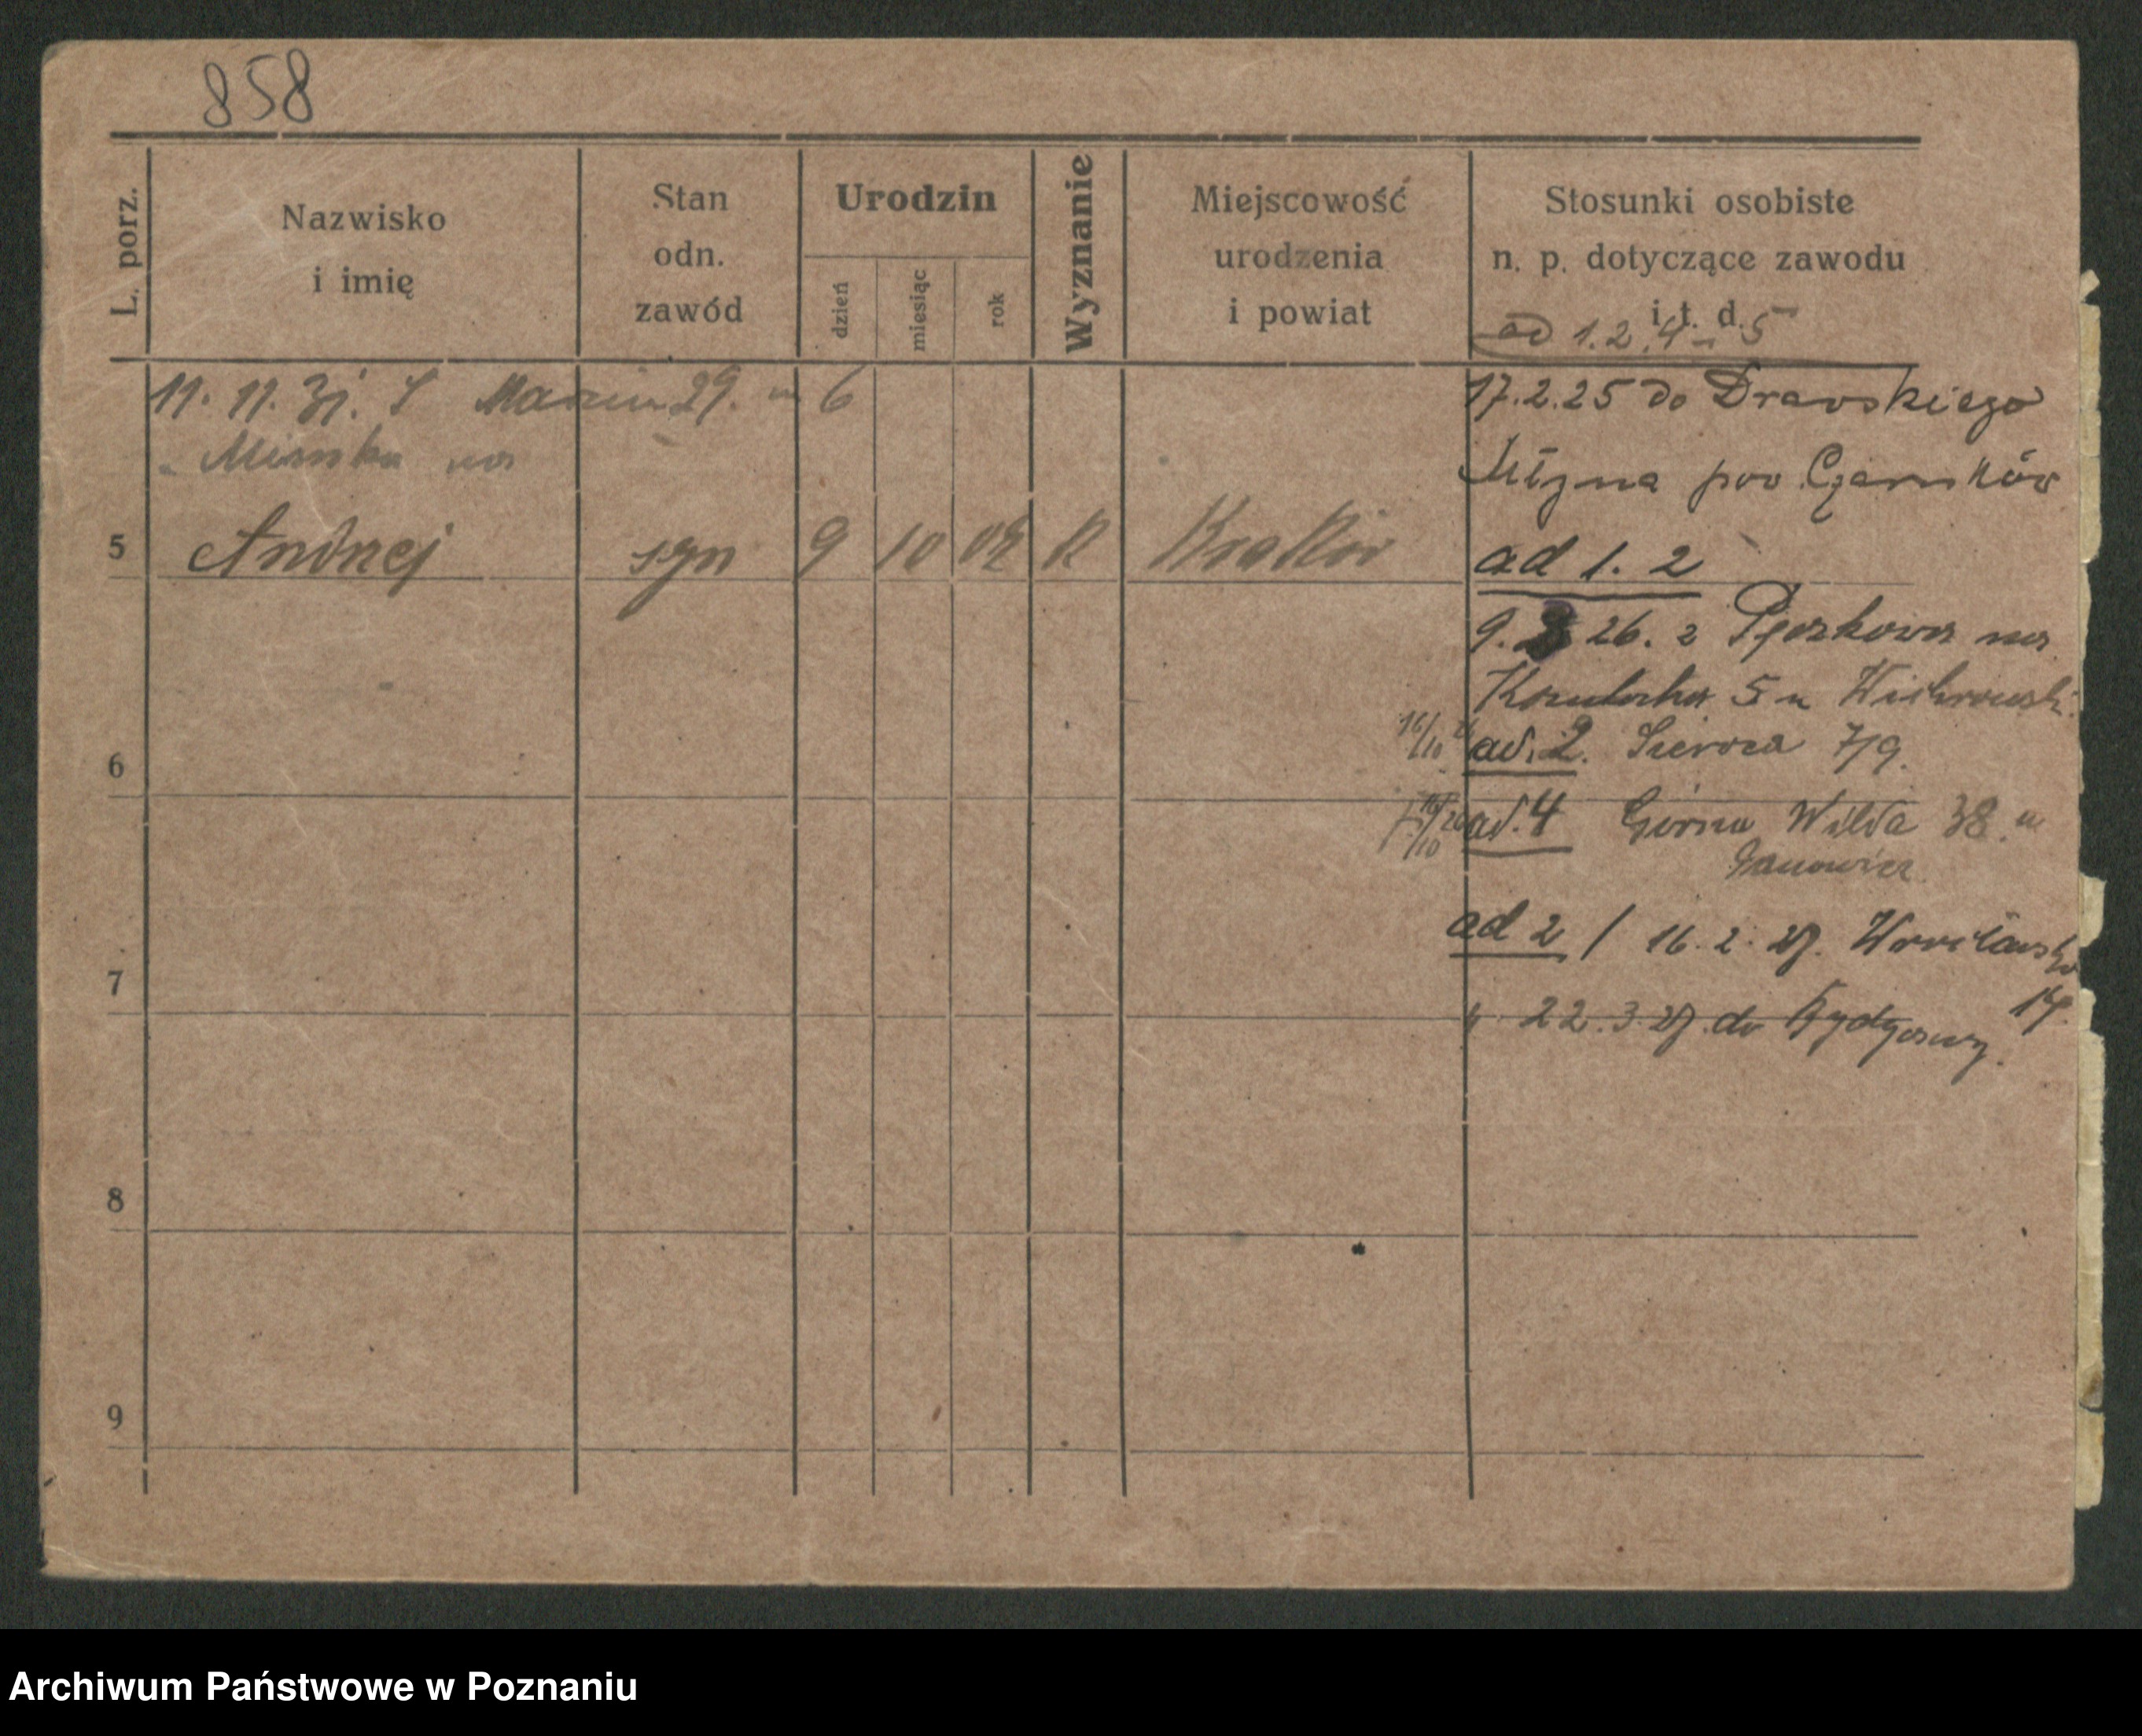 858
L. porz.
Nazwisko
i imię
Stan
odn.
zawód
Urodzin
dzień
miesiąc
rok
Wyznanie
Miejscowość
urodzenia
i powiat
Stosunki osobiste
n. p. dotyczące zawodu
i t. d.
ad 1. 2. 4 5
11. 11. 31. S 29. m 6
17.2.25 do Drawskiego
Młyna pow. Czarnków
5 Andrzej syn 9 10 R Kraków
ad 1. 2
9. 26. z na
5 u
6
16/10 ad. 2. 7/9.
ad. 4 Górna Wilda 38. u
ad 2 / 16. 2. 27. Wrocławska
14.
7
" 22. 3. 27. do Bydgoszczy.
8
9
Archiwum Państwowe w Poznaniu